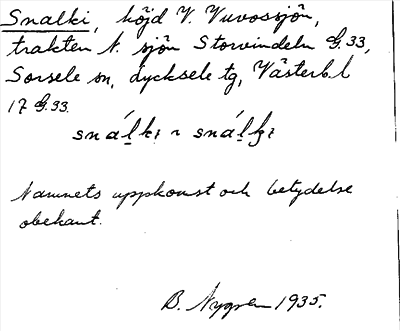 Snalki, höjd V. Vuvossjön,
trakten N. sjön Storvindeln G.33,
Sorsele sn, Lycksele tg, Västerb. l
17 G.33.
snálkı ~ snálʒı
Namnets uppkomst och betydelse
obekant.
B. Nygren 1935.